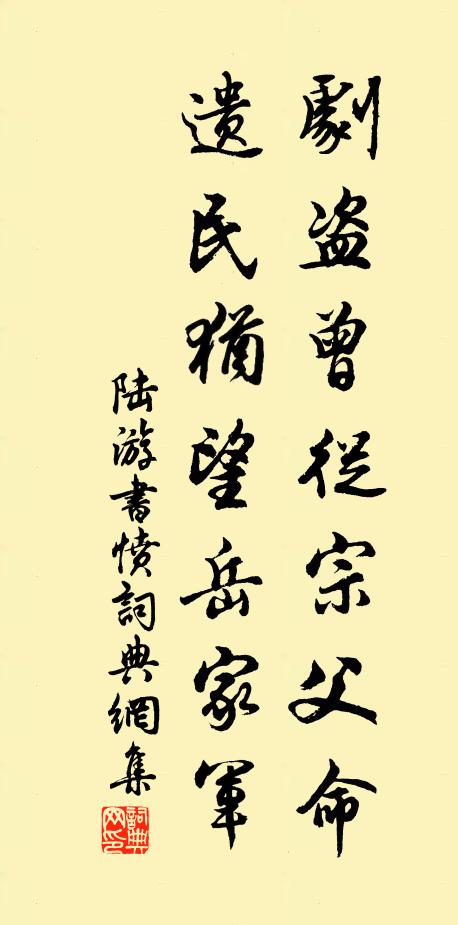 劇盜曾從宗父命
遺民猶望岳家軍
陸游書憤詞典網集
詞典網印